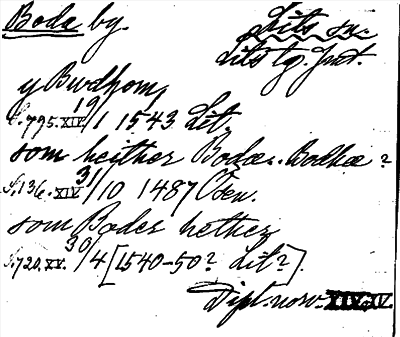 Boda by. Lits sn.
Lits tg. Jmt.
y Bwdhom,
S. 795. XIV 19/1 1543 Lit,
som heither Bodar. Bodhæ?
S. 136. XIV 31/10 1487 Osen.
som Boder hether
S. 720. XV. 30/4 [1540-50? Lit?].
Dipl. norv. XIV, XV.